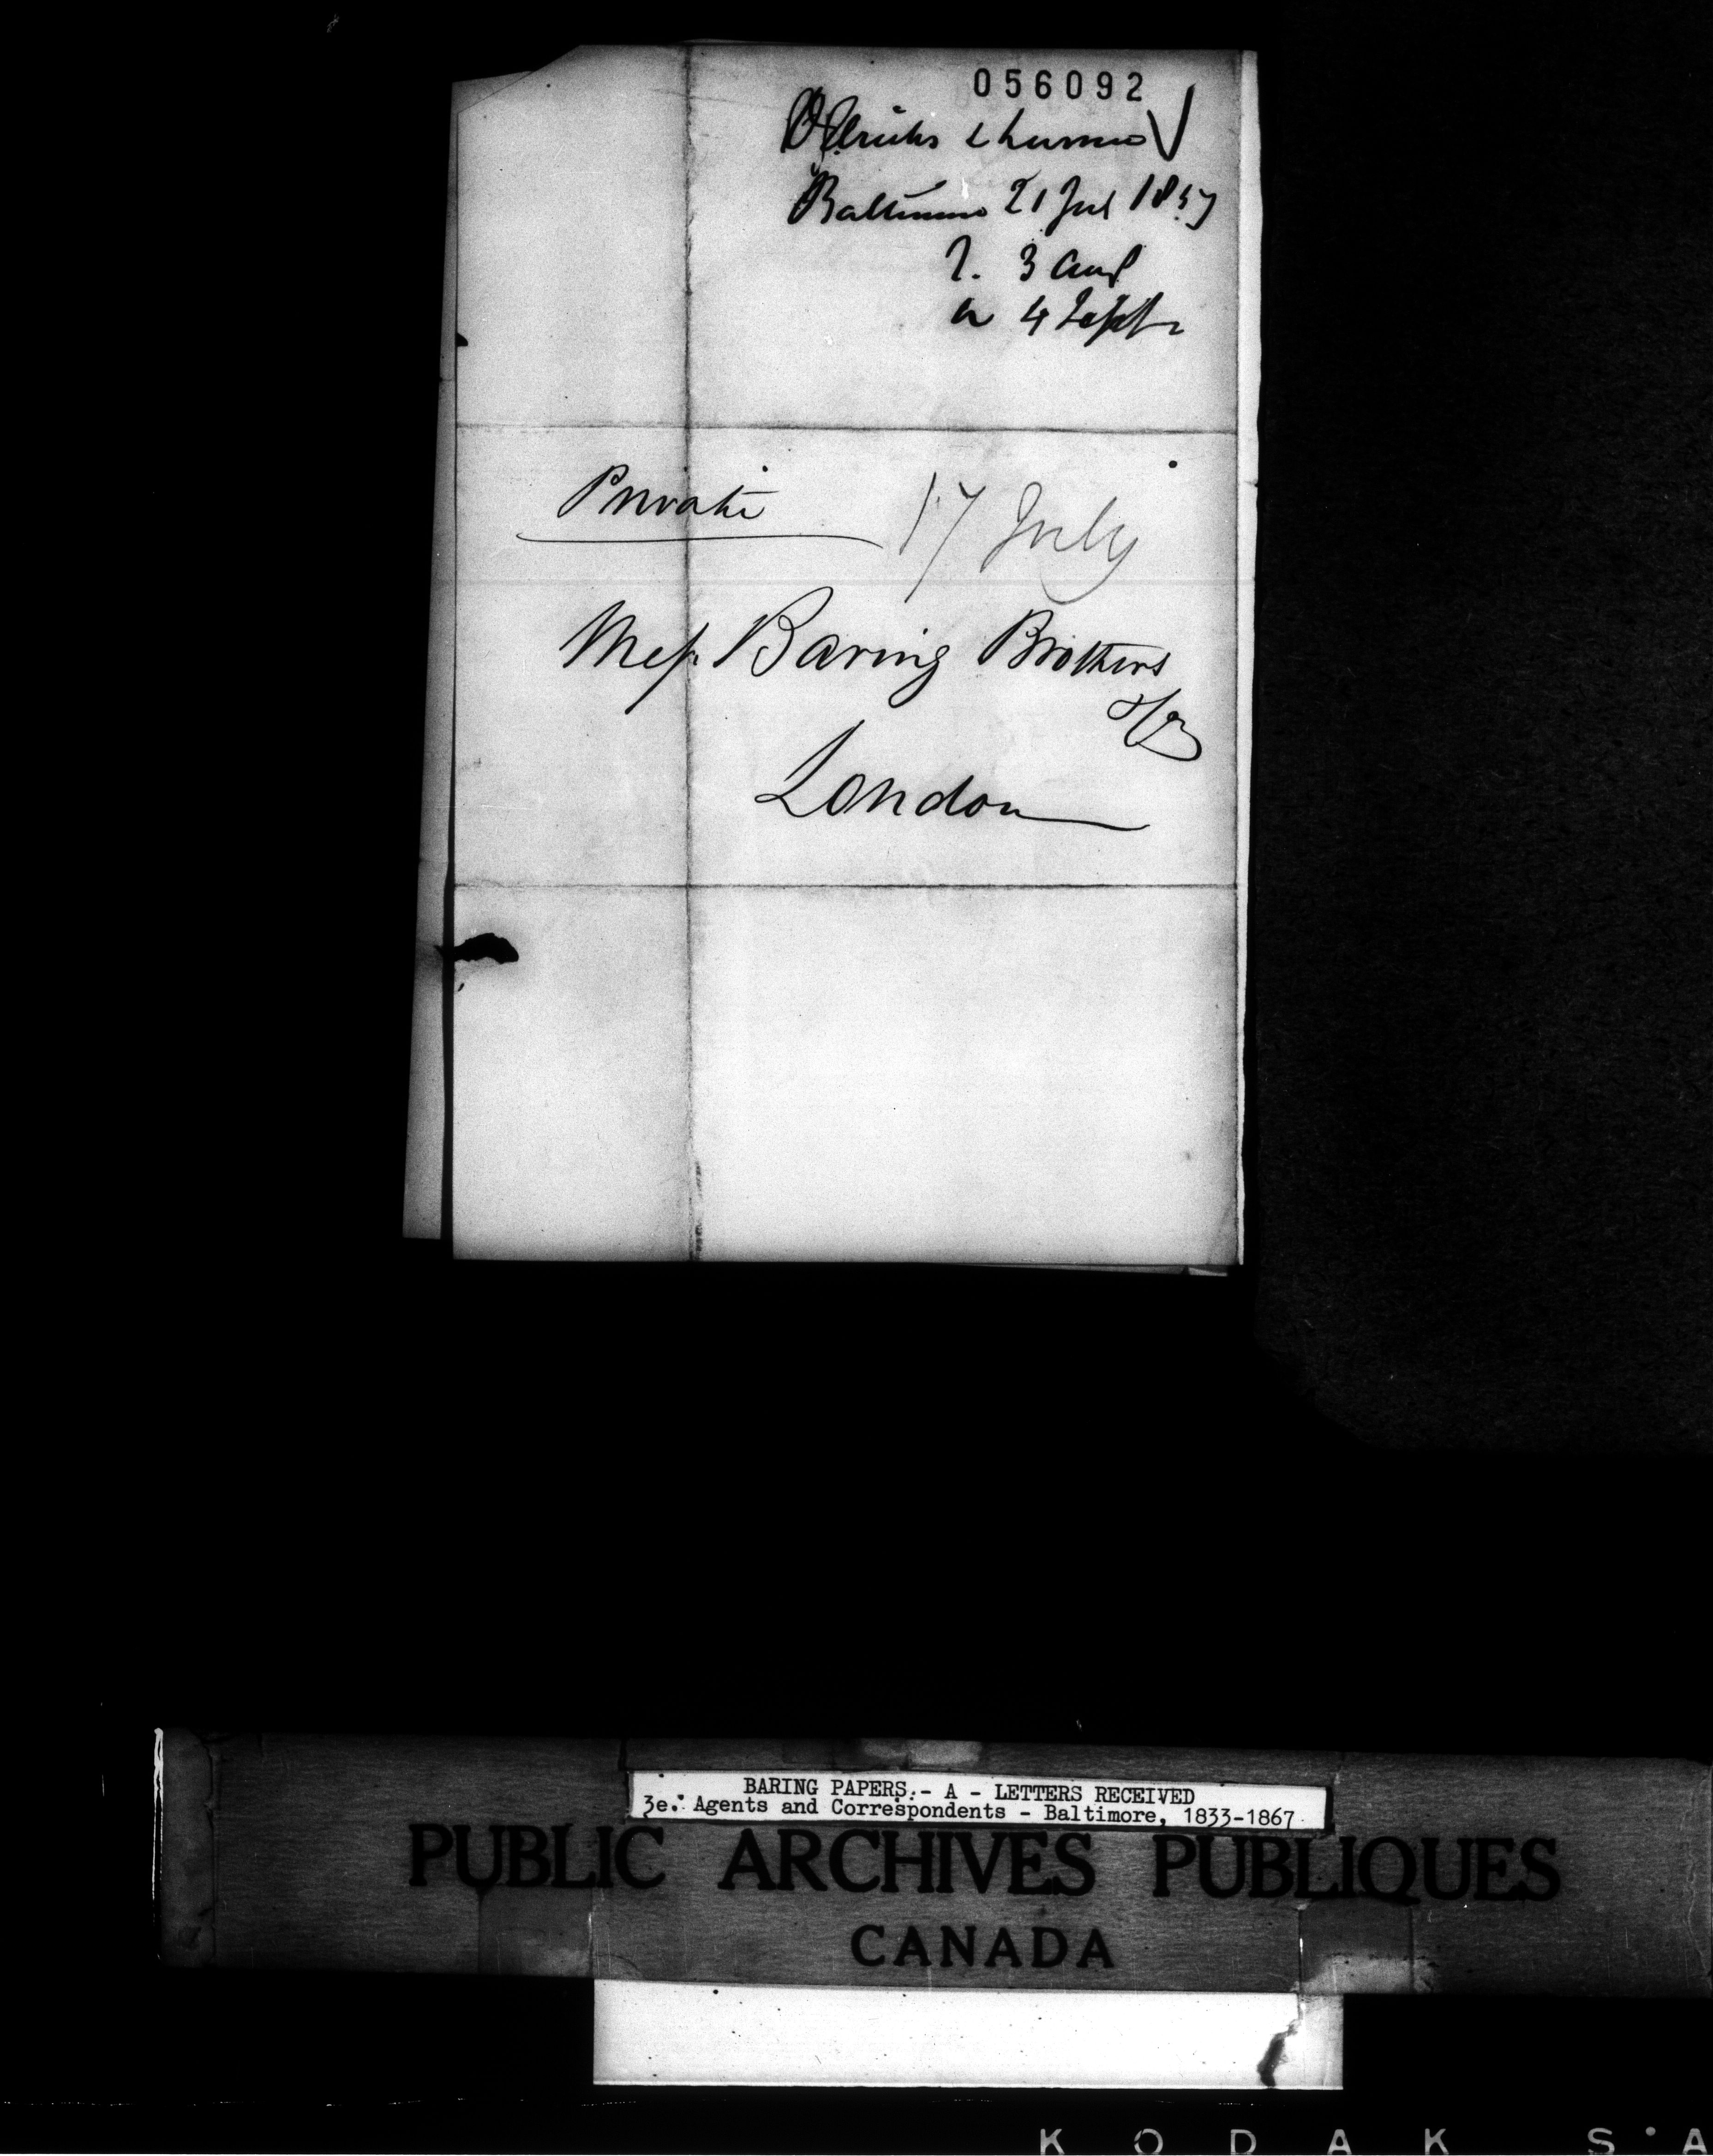 056092
Oelrichs & Lurman
Baltimore 21 Jul 1857
r. 3 Aug
a 4 Sept
Private
17 July
Mess. Baring Brothers
& Co
London
BARING PAPERS.- A - LETTERS RECEIVED
3e. Agents and Correspondents - Baltimore, 1833-1867.
PUBLIC ARCHIVES PUBLIQUES
CANADA
KODAK S·A